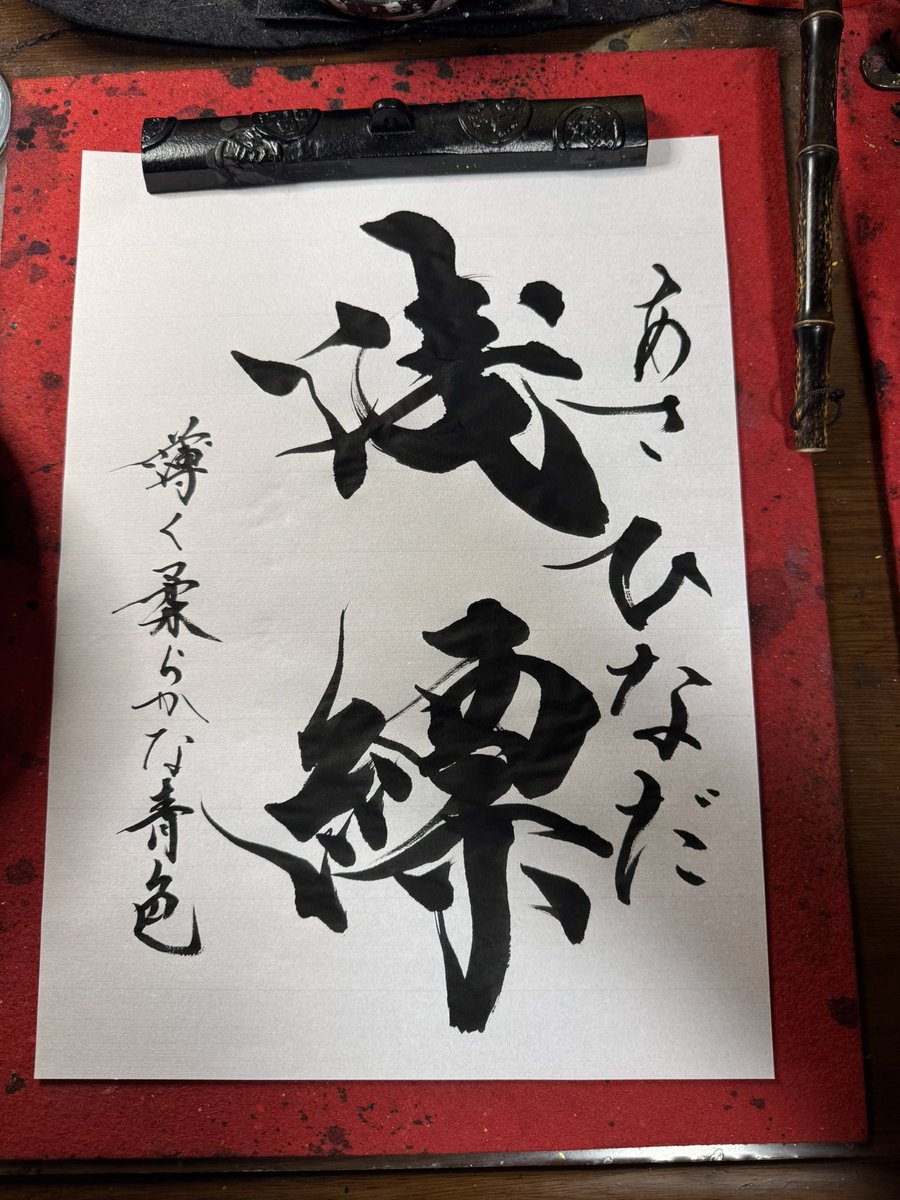 あさひなだ
浅縹
薄く柔らかな青色